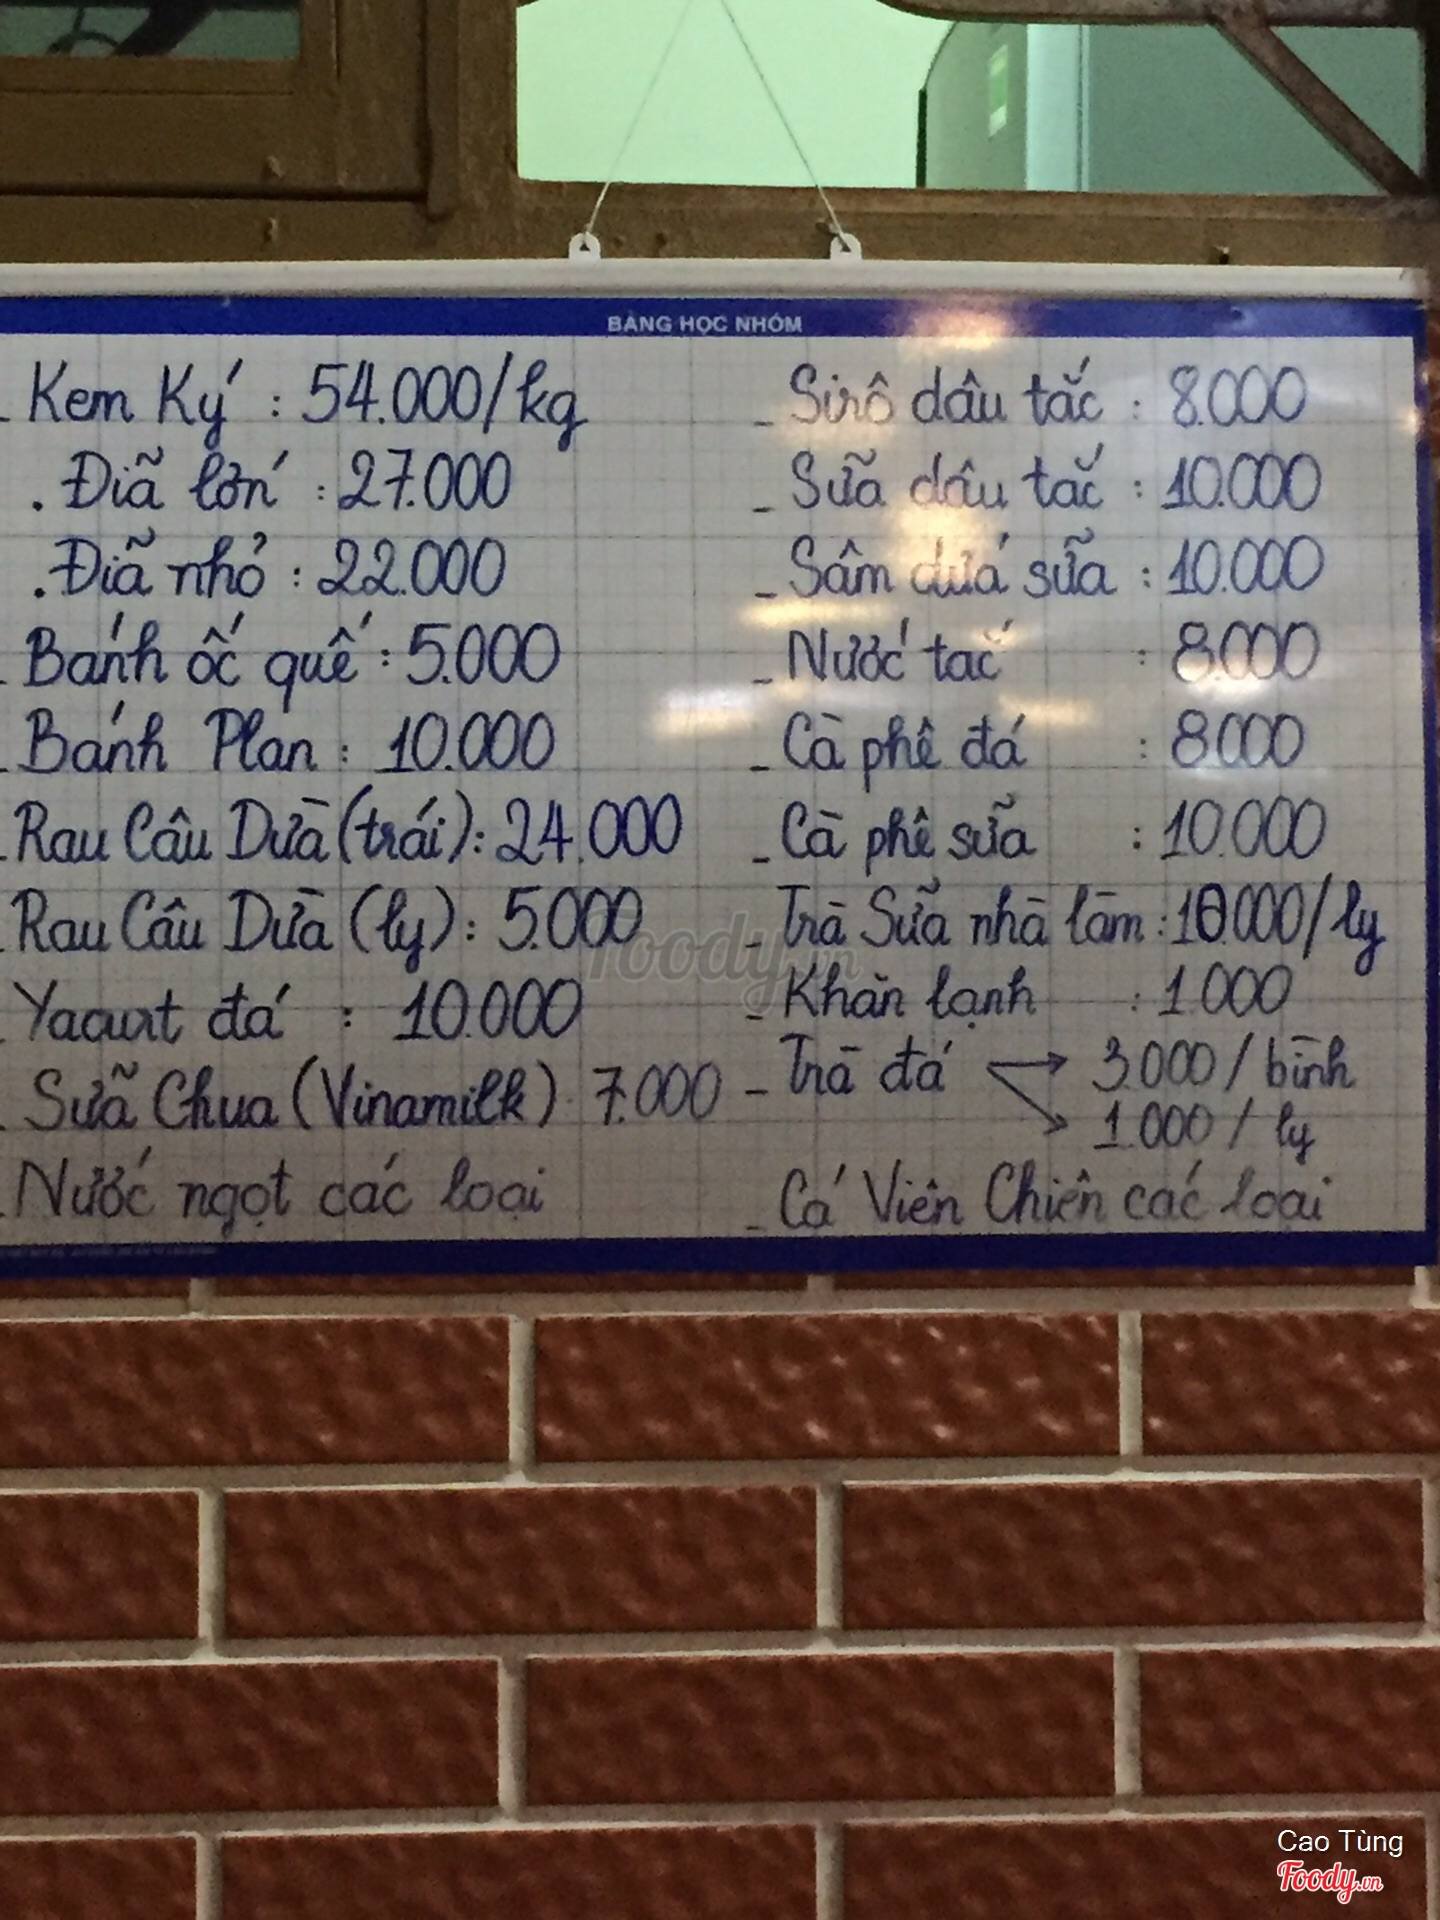 BẢNG HỌC NHÓM
- Kem Ký : 54.000/kg
. Đĩa lớn : 27.000
. Đĩa nhỏ : 22.000
- Bánh ốc quế : 5.000
- Bánh Plan : 10.000
- Rau Câu Dừa (trái) : 24.000
- Rau Câu Dừa (ly) : 5.000
- Yaourt đá : 10.000
- Sữa Chua (Vinamilk) 7.000
- Nước ngọt các loại
- Sirô dâu tắc : 8.000
- Sữa dâu tắc : 10.000
- Sâm dứa sữa : 10.000
- Nước tắc : 8.000
- Cà phê đá : 8.000
- Cà phê sữa : 10.000
- Trà Sữa nhà làm : 10.000/ly
- Khăn lạnh : 1.000
- Trà đá → 3.000 / bình
→ 1.000 / ly
- Cá Viên Chiên các loại
Foody.vn
Cao Tùng
Foody.vn